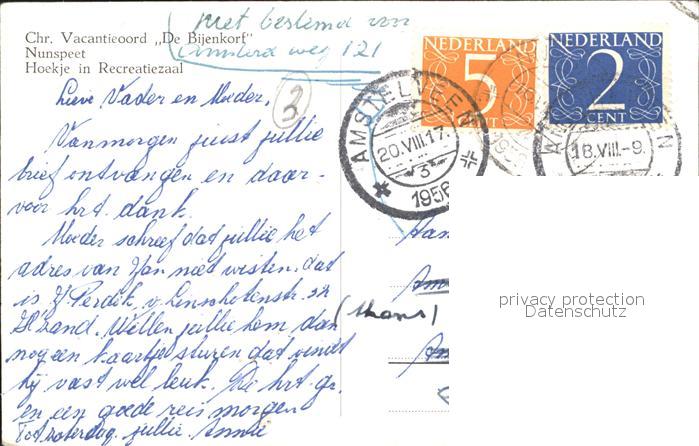 Chr. Vacantieoord „De Bijenkorf"
Nunspeet
Hoekje in Recreatiezaal
Niet bestemd voor
weg 121
3
NEDERLAND
5
CENT
NEDERLAND
2
CENT
AMSTELVEEN
20.VIII.17
3
1956
18.VIII.-9.
Lieve Vader en Moeder,
Vanmorgen juist jullie
brief ontvangen en daar-
voor hrt. dank.
Moeder schreef dat jullie het
adres van Jan niet wisten, dat
is J. Perdik, v. Linschotenstr.
Zand. Willen jullie hem dan
nog een kaartje sturen dat vindt
hij vast wel leuk. De hrt. gr.
en een goede reis morgen
Tot zaterdag. jullie Annie
(thans)
privacy protection
Datenschutz